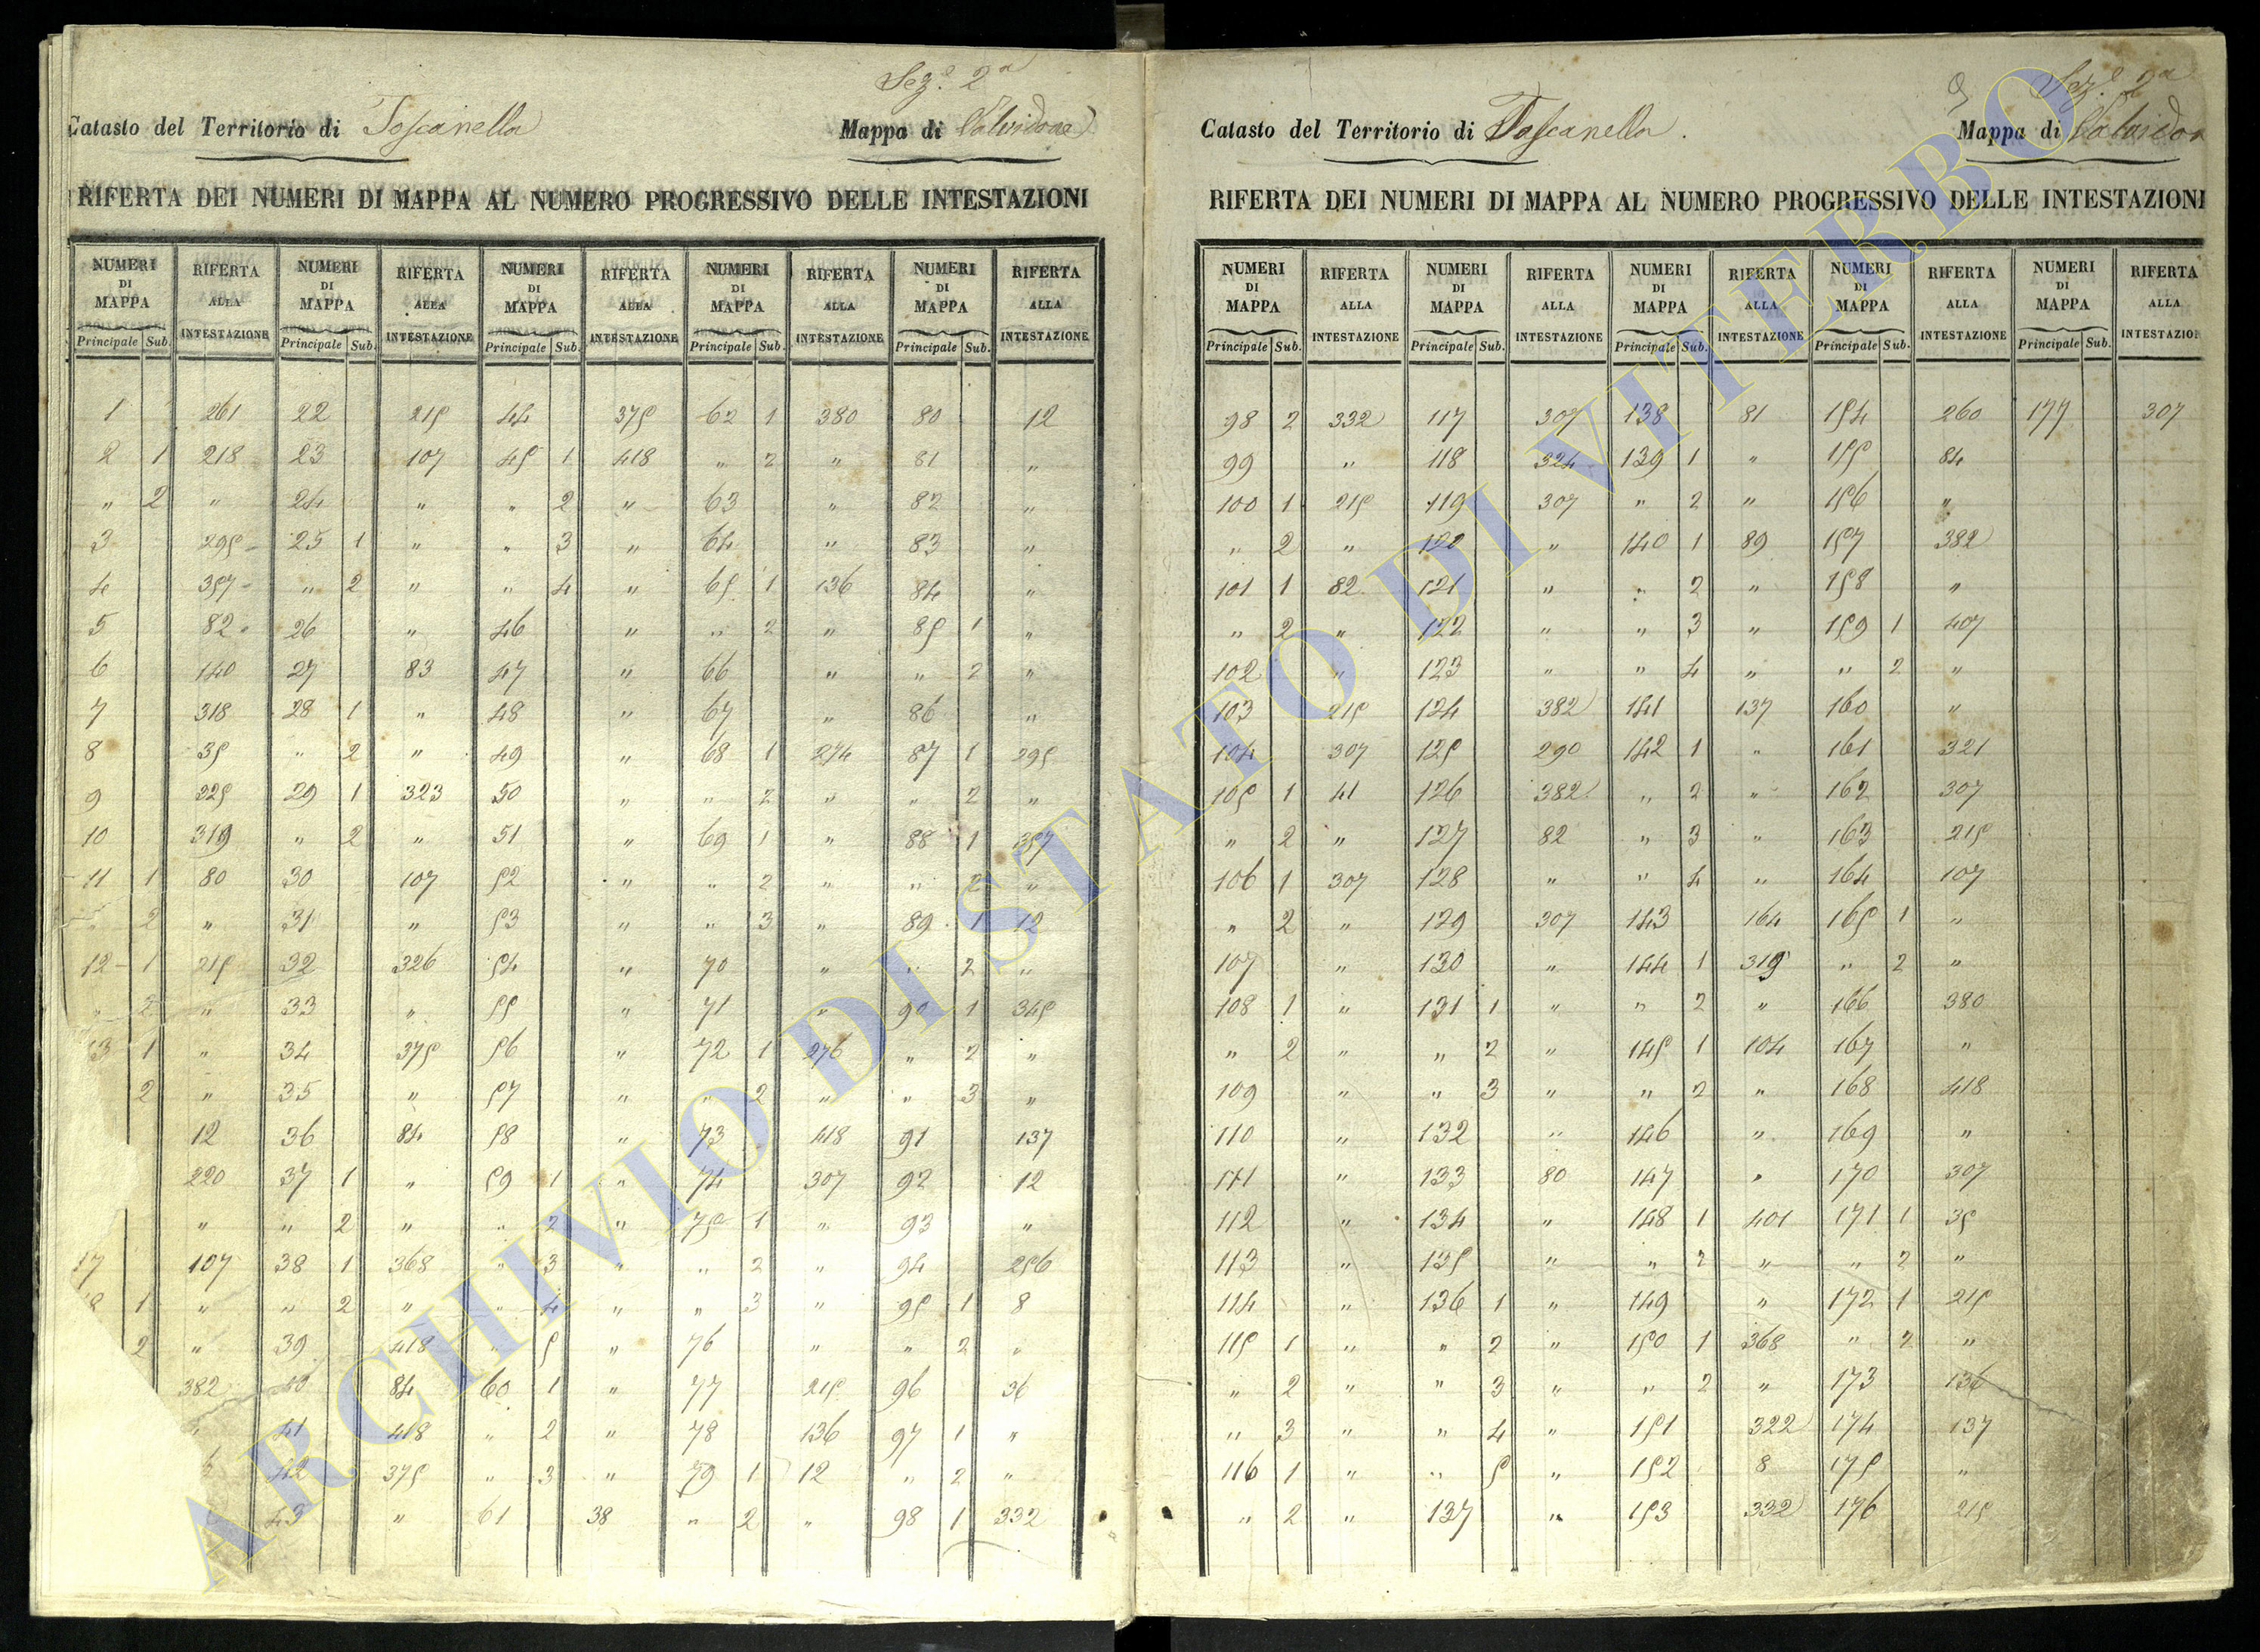 Sez.e 2a
Catasto del Territorio di Toscanella Mappa di
RIFERTA DEI NUMERI DI MAPPA AL NUMERO PROGRESSIVO DELLE INTESTAZIONI
NUMERI DI MAPPA RIFERTA ALLA INTESTAZIONE NUMERI DI MAPPA RIFERTA ALLA INTESTAZIONE NUMERI DI MAPPA RIFERTA ALLA INTESTAZIONE NUMERI DI MAPPA RIFERTA ALLA INTESTAZIONE NUMERI DI MAPPA RIFERTA ALLA INTESTAZIONE
Principale Sub. Principale Sub. Principale Sub. Principale Sub. Principale Sub.
1 261 22 215 44 375 62 1 380 80 12
2 1 218 23 107 45 1 418 " 2 " 81 "
" 2 " 24 " " 2 " 63 " 82 "
3 295 25 1 " " 3 " 64 " 83 "
4 357 " 2 " " 4 " 65 1 136 84 "
5 82 26 " 46 " " 2 " 85 1 "
6 140 27 83 47 " 66 " " 2 "
7 318 28 1 " 48 " 67 " 86 "
8 35 " 2 " 49 " 68 1 274 87 1 295
9 225 29 1 323 50 " " 2 " " 2 "
10 319 " 2 " 51 " 69 1 " 88 1 357
11 1 80 30 107 52 " " 2 " " 2 "
" 2 " 31 " 53 " " 3 " 89 1 12
12 1 215 32 326 54 " 70 " " 2 "
" 2 " 33 " 55 " 71 " 90 1 345
13 1 " 34 375 56 " 72 1 276 " 2 "
2 " 35 " 57 " " 2 " " 3 "
12 36 84 58 " 73 418 91 137
220 37 1 " 59 1 " 74 307 92 12
" " 2 " " 2 " 75 1 " 93 "
17 107 38 1 368 " 3 " " 2 " 94 256
1 " " 2 " " 4 " " 3 " 95 1 8
2 " 39 418 " 5 " 76 " " 2 "
382 40 84 60 1 " 77 215 96 36
41 418 " 2 " 78 136 97 1 "
42 375 " 3 " 79 1 12 " 2 "
43 " 61 38 " 2 " 98 1 332
Sez.e 2a
Catasto del Territorio di Toscanella. Mappa di
RIFERTA DEI NUMERI DI MAPPA AL NUMERO PROGRESSIVO DELLE INTESTAZIONI
NUMERI DI MAPPA RIFERTA ALLA INTESTAZIONE NUMERI DI MAPPA RIFERTA ALLA INTESTAZIONE NUMERI DI MAPPA RIFERTA ALLA INTESTAZIONE NUMERI DI MAPPA RIFERTA ALLA INTESTAZIONE NUMERI DI MAPPA RIFERTA ALLA INTESTAZIO
Principale Sub. Principale Sub. Principale Sub. Principale Sub. Principale Sub.
98 2 332 117 307 138 81 154 260 177 307
99 " 118 324 139 1 " 155 84
100 1 215 119 307 " 2 " 156 "
" 2 " 120 " 140 1 89 157 382
101 1 82 121 " " 2 " 158 "
" 2 " 122 " " 3 " 159 1 407
102 " 123 " " 4 " " 2 "
103 215 124 382 141 137 160 "
104 307 125 290 142 1 " 161 321
105 1 41 126 382 " 2 " 162 307
" 2 " 127 82 " 3 " 163 215
106 1 307 128 " " 4 " 164 107
" 2 " 129 307 143 164 165 1 "
107 " 130 " 144 1 319 " 2 "
108 1 " 131 1 " " 2 " 166 380
" 2 " " 2 " 145 1 104 167 "
109 " " 3 " " 2 " 168 418
110 " 132 " 146 " 169 "
111 " 133 80 147 " 170 307
112 " 134 " 148 1 401 171 1 35
113 " 135 " " 2 " " 2 "
114 " 136 1 " 149 " 172 1 215
115 1 " " 2 " 150 1 368 " 2 "
" 2 " " 3 " " 2 " 173 136
" 3 " " 4 " 151 322 174 137
116 1 " " 5 " 152 8 175 "
" 2 " 137 " 153 332 176 215
ARCHIVIO DI STATO DI VITERBO